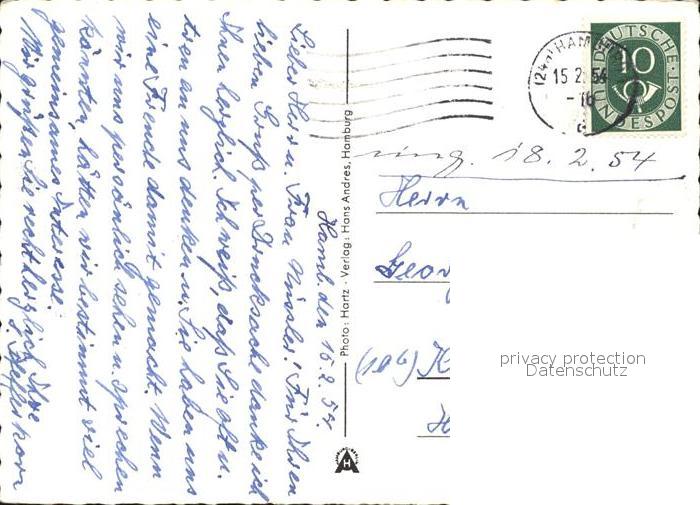 Hamb. den 15.2.54.
Lieber Herr u. Frau Nissler! Für Ihren
lieben Gruß per Drucksache danke ich
Ihnen herzlich. Ich weiß, daß Sie oft u.
an uns denken u. Sie haben uns
eine Freude damit gemacht. Wenn
wir uns persönlich sehen u. sprechen
könnten, hätten wir bestimmt viel
gemeinsames Interesse.
Wir grüßen Sie recht herzlich Ihre
Photo: Hartz · Verlag: Hans Andres, Hamburg
HANS ANDRES
(24a) HAMBURG
15.2.54
-16
c
DEUTSCHE
10
BUNDESPOST
18.2.54
Herrn
Geor
(16)
H
privacy protection
Datenschutz